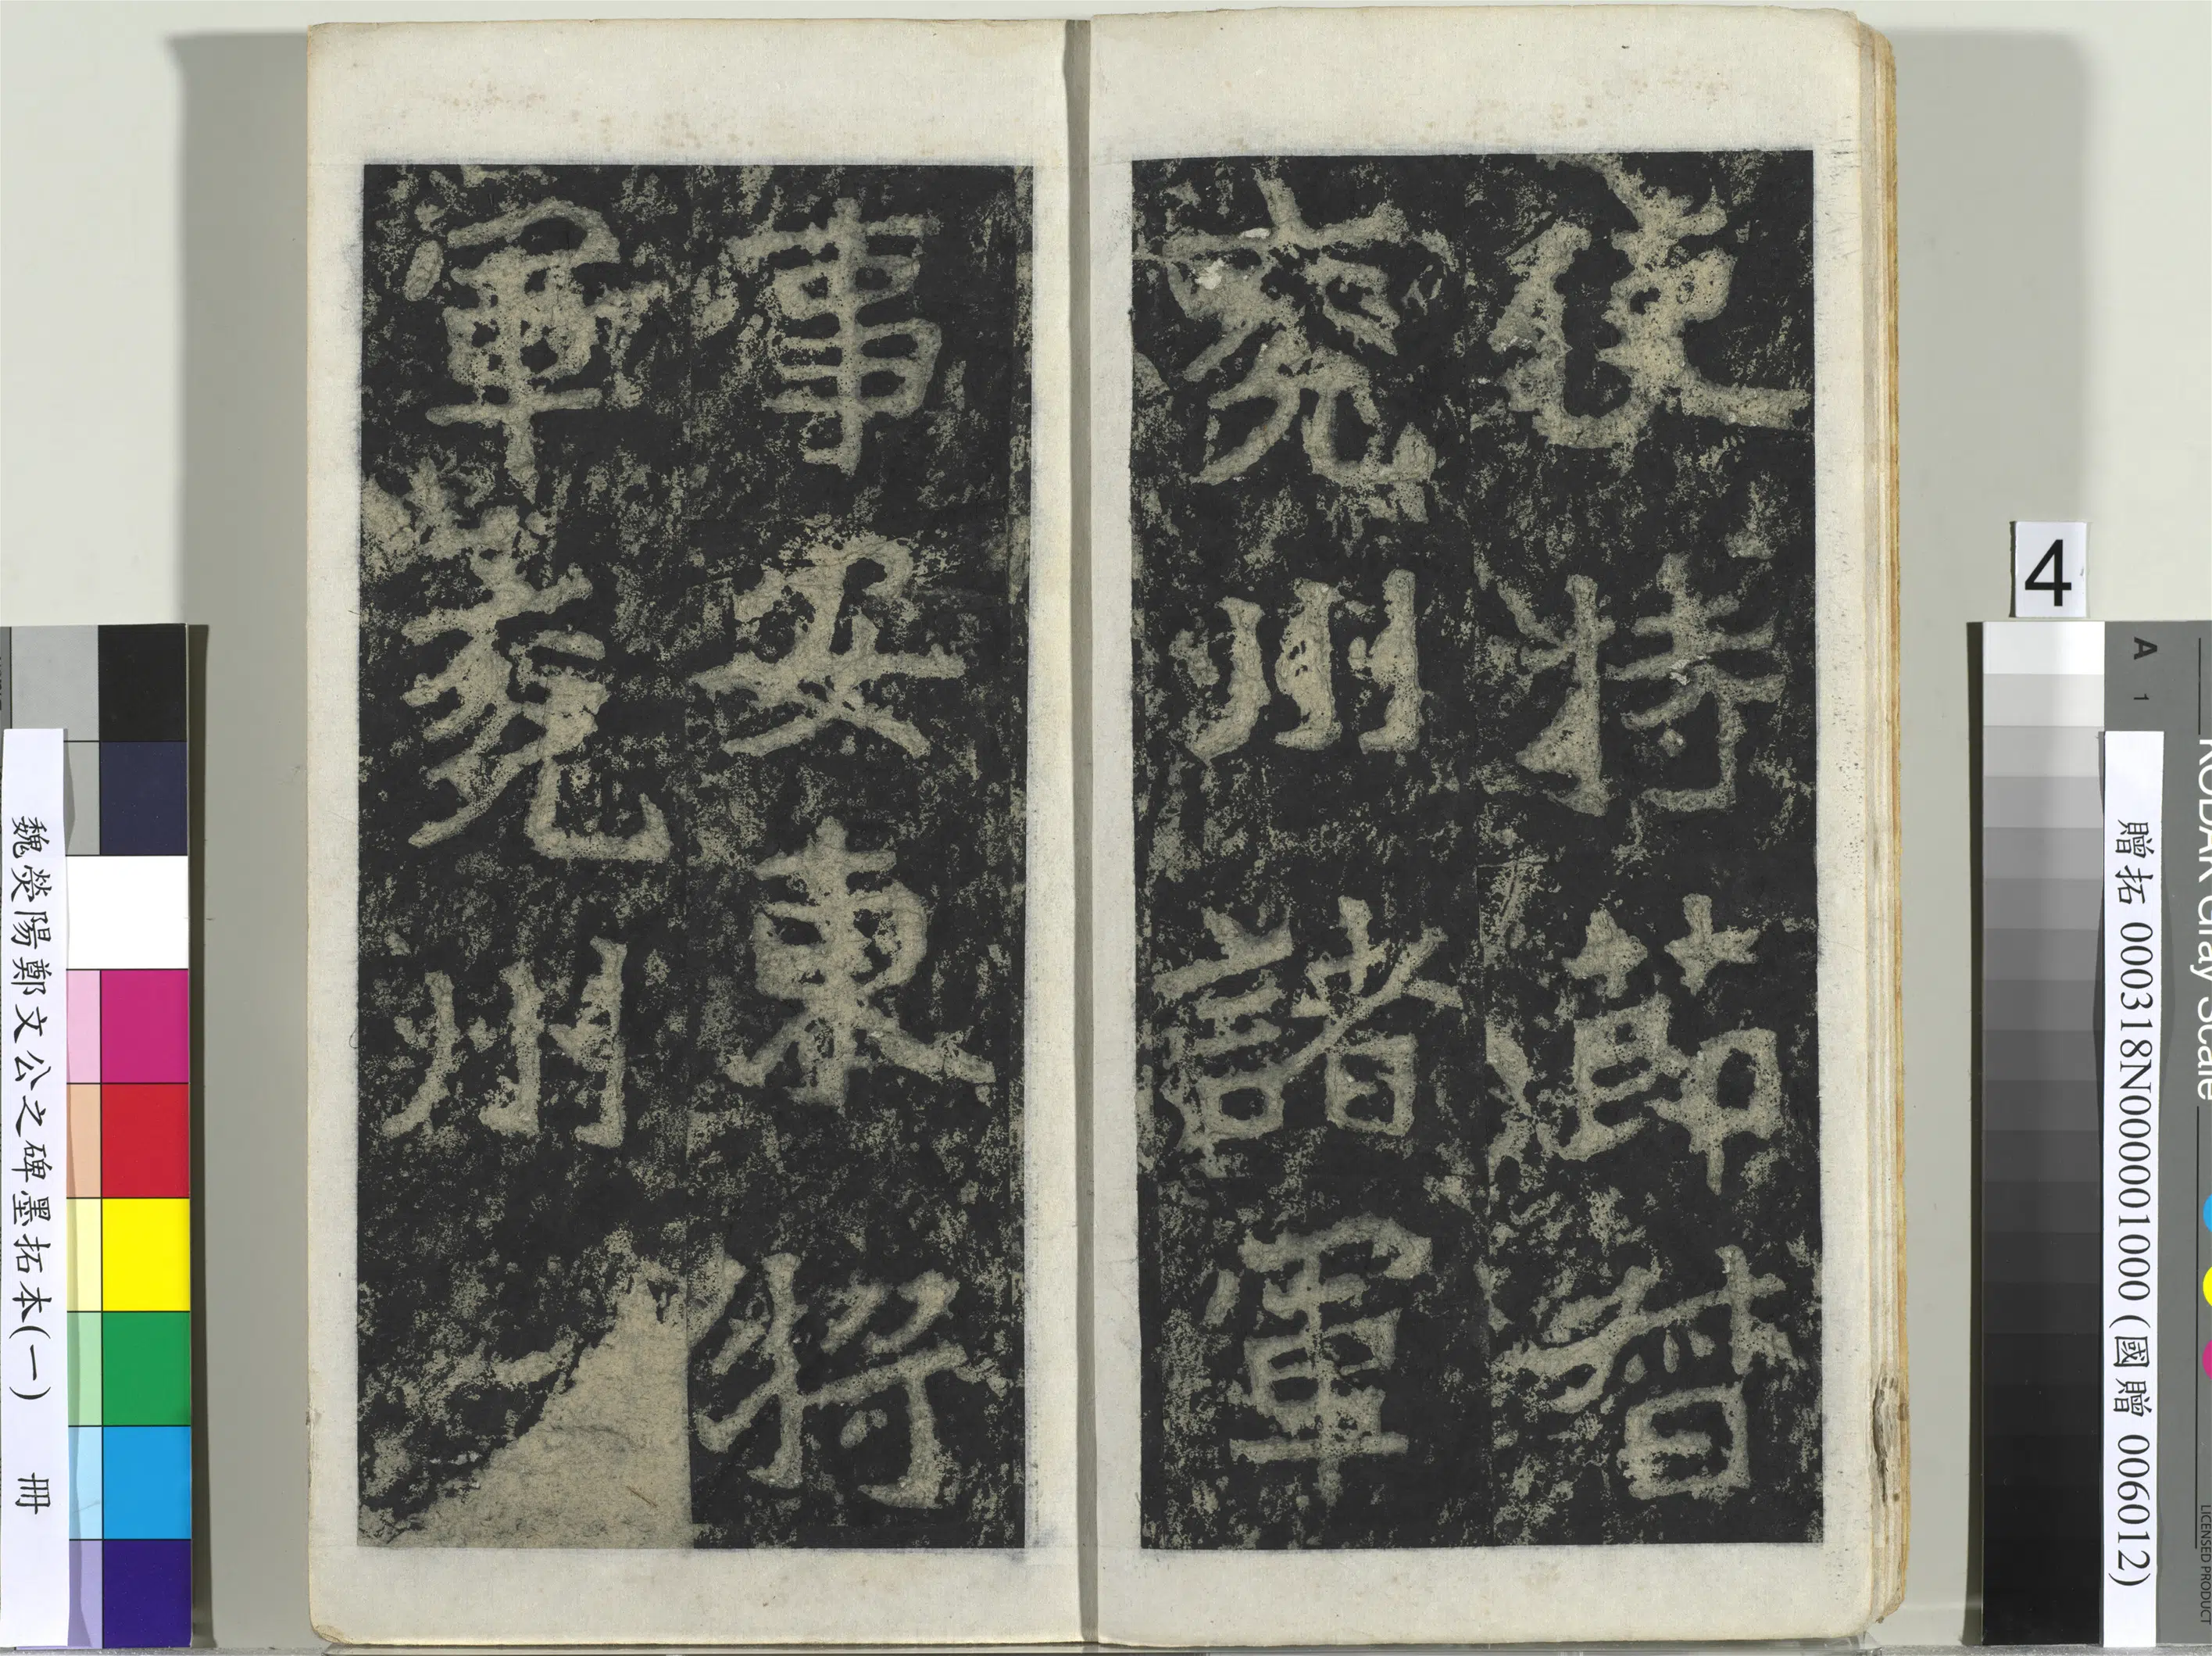 使持節督
兗州諸軍
事安東將
軍兗州
4
A 1
KODAK Gray Scale
LICENSED PRODUCT
贈拓 000318N000001000 (國贈 006012)
魏滎陽鄭文公之碑墨拓本(一) 冊